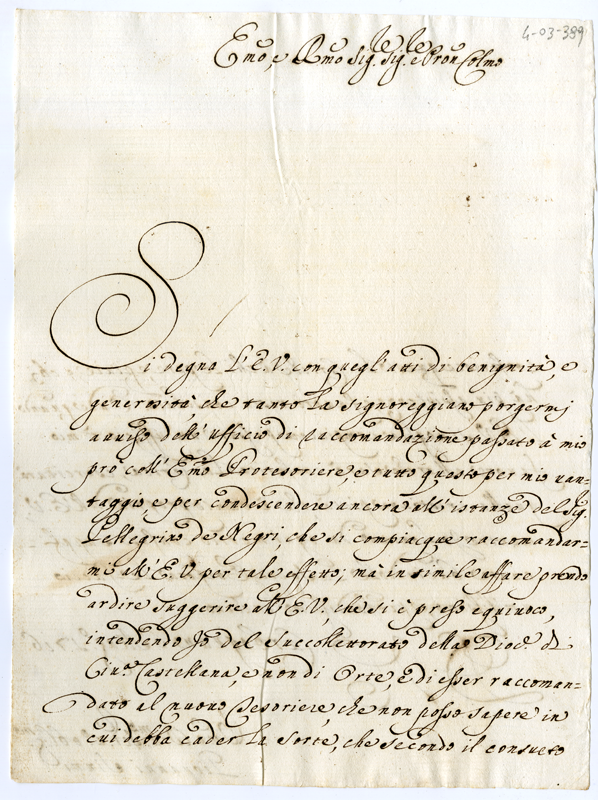 4-03-389
Emo, e Rmo Sig. Sig.re e Pron Colmo
Si degna L'E.V. con quegl'atti di benignità, e
generosità, che tanto La signoreggiano porgermj
avviso dell'ufficio di raccomandazione passato à mio
prò coll'Emo Protesoriere, e tutto questo per mio van=
taggio, e per condescendere ancora all'istanze del Sig.
Pellegrino de Negri, che si compiacque raccomandar=
mi all'E.V. per tale effetto; mà in simile affare prendo
ardire suggerire all'E.V., che si è preso equivoco,
intendendo Jo del Succollettorato della Dioc. di
Civ.a Castellana, e non di Orte, e di esser raccoman=
dato al nuovo Tesoriere, che non posso sapere in
cui debba cader La sorte, che secondo il consueto